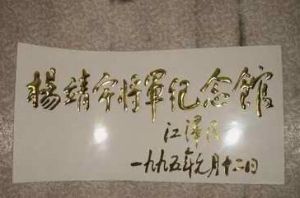 楊靖宇將軍纪念館
江澤民
一九九五年元月十六日